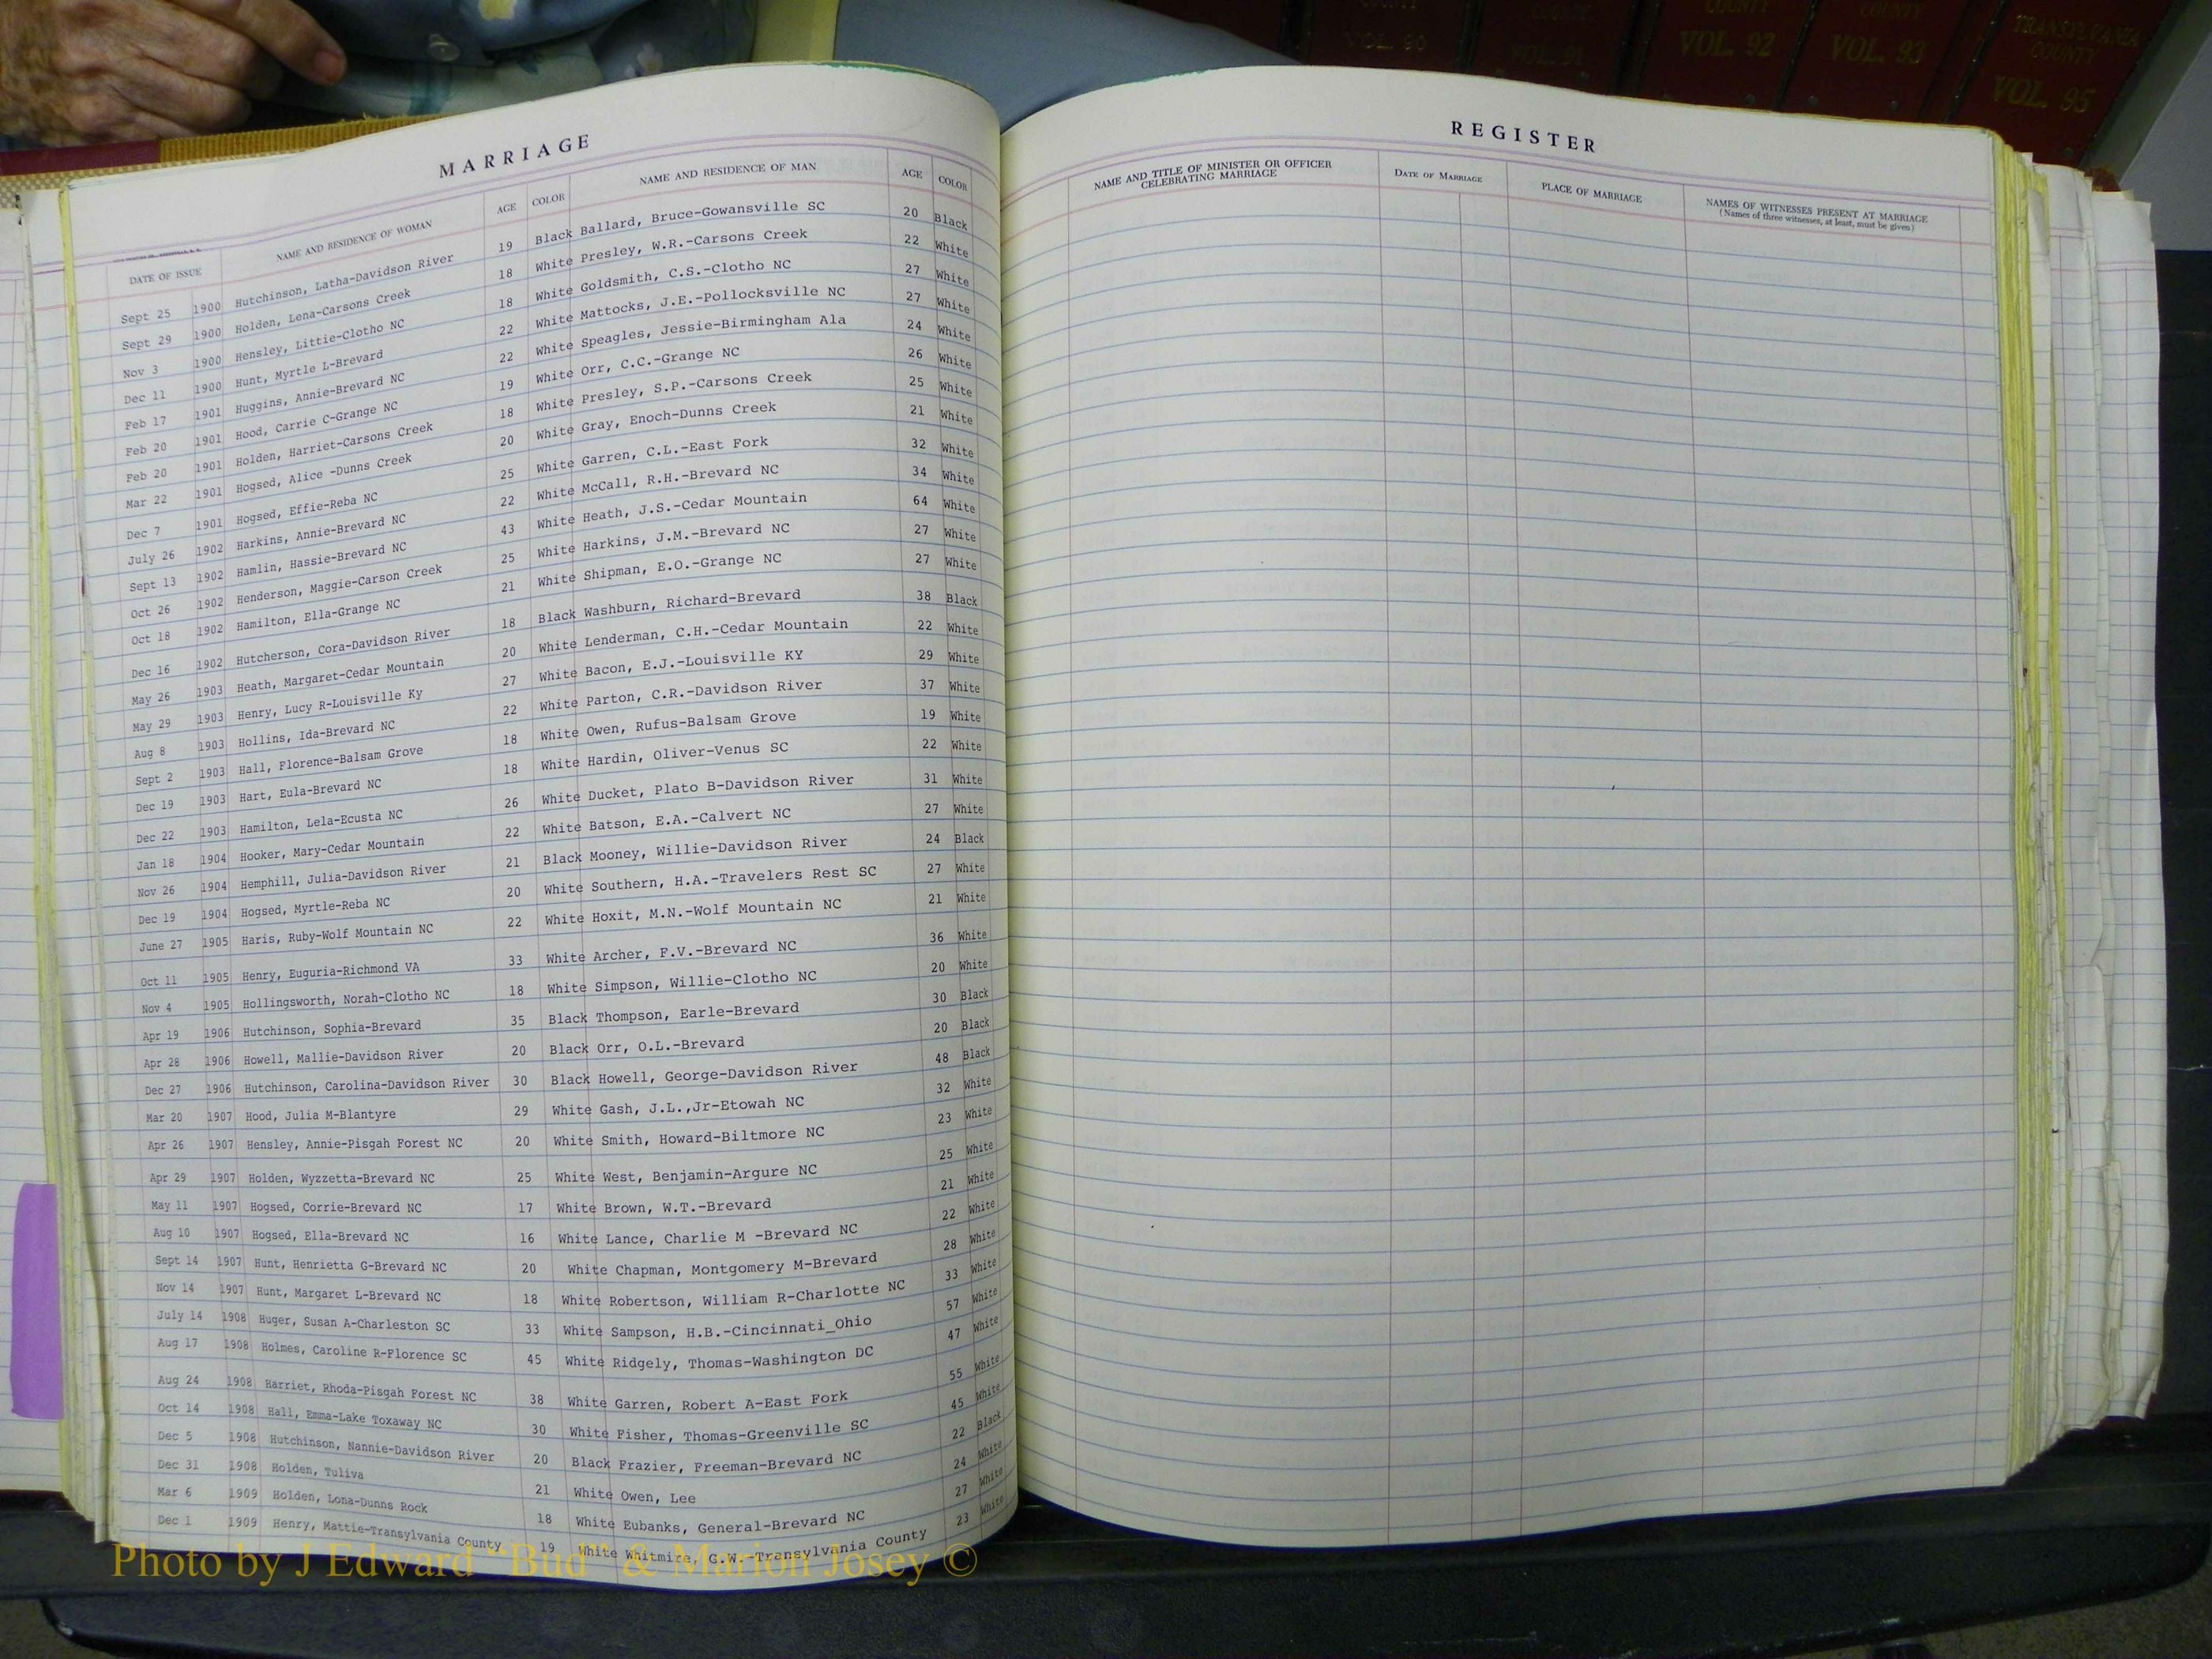 COUNTY
VOL. 90
COUNTY
VOL. 91
COUNTY
VOL. 92
COUNTY
VOL. 93
TRANSYLVANIA
COUNTY
VOL. 95
MARRIAGE
DATE OF ISSUE NAME AND RESIDENCE OF WOMAN AGE COLOR NAME AND RESIDENCE OF MAN AGE COLOR
Sept 25 1900 Hutchinson, Latha-Davidson River 19 Black Ballard, Bruce-Gowansville SC 20 Black
Sept 29 1900 Holden, Lena-Carsons Creek 18 White Presley, W.R.-Carsons Creek 22 White
Nov 3 1900 Hensley, Littie-Clotho NC 18 White Goldsmith, C.S.-Clotho NC 27 White
Dec 11 1900 Hunt, Myrtle L-Brevard 22 White Mattocks, J.E.-Pollocksville NC 27 White
Feb 17 1901 Huggins, Annie-Brevard NC 22 White Speagles, Jessie-Birmingham Ala 24 White
Feb 20 1901 Hood, Carrie C-Grange NC 19 White Orr, C.C.-Grange NC 26 White
Feb 20 1901 Holden, Harriet-Carsons Creek 18 White Presley, S.P.-Carsons Creek 25 White
Mar 22 1901 Hogsed, Alice -Dunns Creek 20 White Gray, Enoch-Dunns Creek 21 White
Dec 7 1901 Hogsed, Effie-Reba NC 25 White Garren, C.L.-East Fork 32 White
July 26 1902 Harkins, Annie-Brevard NC 22 White McCall, R.H.-Brevard NC 34 White
Sept 13 1902 Hamlin, Hassie-Brevard NC 43 White Heath, J.S.-Cedar Mountain 64 White
Oct 26 1902 Henderson, Maggie-Carson Creek 25 White Harkins, J.M.-Brevard NC 27 White
Oct 18 1902 Hamilton, Ella-Grange NC 21 White Shipman, E.O.-Grange NC 27 White
Dec 16 1902 Hutcherson, Cora-Davidson River 18 Black Washburn, Richard-Brevard 38 Black
May 26 1903 Heath, Margaret-Cedar Mountain 20 White Lenderman, C.H.-Cedar Mountain 22 White
May 29 1903 Henry, Lucy R-Louisville Ky 27 White Bacon, E.J.-Louisville KY 29 White
Aug 8 1903 Hollins, Ida-Brevard NC 22 White Parton, C.R.-Davidson River 37 White
Sept 2 1903 Hall, Florence-Balsam Grove 18 White Owen, Rufus-Balsam Grove 19 White
Dec 19 1903 Hart, Eula-Brevard NC 18 White Hardin, Oliver-Venus SC 22 White
Dec 22 1903 Hamilton, Lela-Ecusta NC 26 White Ducket, Plato B-Davidson River 31 White
Jan 18 1904 Hooker, Mary-Cedar Mountain 22 White Batson, E.A.-Calvert NC 27 White
Nov 26 1904 Hemphill, Julia-Davidson River 21 Black Mooney, Willie-Davidson River 24 Black
Dec 19 1904 Hogsed, Myrtle-Reba NC 20 White Southern, H.A.-Travelers Rest SC 27 White
June 27 1905 Haris, Ruby-Wolf Mountain NC 22 White Hoxit, M.N.-Wolf Mountain NC 21 White
Oct 11 1905 Henry, Euguria-Richmond VA 33 White Archer, F.V.-Brevard NC 36 White
Nov 4 1905 Hollingsworth, Norah-Clotho NC 18 White Simpson, Willie-Clotho NC 20 White
Apr 19 1906 Hutchinson, Sophia-Brevard 35 Black Thompson, Earle-Brevard 30 Black
Apr 28 1906 Howell, Mallie-Davidson River 20 Black Orr, O.L.-Brevard 20 Black
Dec 27 1906 Hutchinson, Carolina-Davidson River 30 Black Howell, George-Davidson River 48 Black
Mar 20 1907 Hood, Julia M-Blantyre 29 White Gash, J.L.,Jr-Etowah NC 32 White
Apr 26 1907 Hensley, Annie-Pisgah Forest NC 20 White Smith, Howard-Biltmore NC 23 White
Apr 29 1907 Holden, Wyzzetta-Brevard NC 25 White West, Benjamin-Argure NC 25 White
May 11 1907 Hogsed, Corrie-Brevard NC 17 White Brown, W.T.-Brevard 21 White
Aug 10 1907 Hogsed, Ella-Brevard NC 16 White Lance, Charlie M -Brevard NC 22 White
Sept 14 1907 Hunt, Henrietta G-Brevard NC 20 White Chapman, Montgomery M-Brevard 28 White
Nov 14 1907 Hunt, Margaret L-Brevard NC 18 White Robertson, William R-Charlotte NC 33 White
July 14 1908 Huger, Susan A-Charleston SC 33 White Sampson, H.B.-Cincinnati_Ohio 57 White
Aug 17 1908 Holmes, Caroline R-Florence SC 45 White Ridgely, Thomas-Washington DC 47 White
Aug 24 1908 Harriet, Rhoda-Pisgah Forest NC 38 White Garren, Robert A-East Fork 55 White
Oct 14 1908 Hall, Emma-Lake Toxaway NC 30 White Fisher, Thomas-Greenville SC 45 White
Dec 5 1908 Hutchinson, Nannie-Davidson River 20 Black Frazier, Freeman-Brevard NC 22 Black
Dec 31 1908 Holden, Tuliva 21 White Owen, Lee 24 White
Mar 6 1909 Holden, Lona-Dunns Rock 18 White Eubanks, General-Brevard NC 27 White
Dec 1 1909 Henry, Mattie-Transylvania County 19 White Whitmire, G.W.-Transylvania County 23 White
REGISTER
NAME AND TITLE OF MINISTER OR OFFICER CELEBRATING MARRIAGE DATE OF MARRIAGE PLACE OF MARRIAGE NAMES OF WITNESSES PRESENT AT MARRIAGE
(Names of three witnesses, at least, must be given)
Photo by J Edward “Bud” & Marion Josey ©